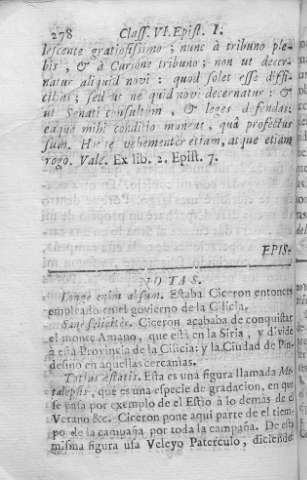 278 Class. VI. Epist. I.
lescente gratiosissimo; nunc à tribuno ple-
bis, & à Curione tribuno; non ut decer-
natur aliquid novi: quod solet esse diffi-
cilius; sed ut ne quid novi decernatur: &
ut Senati consultum, & leges defendas:
eaque mihi conditio maneat, quâ profectus
sum. Hoc te vehementer etiam, atque etiam
rogo. Vale. Ex lib. 2. Epist. 7.
EPIS-
NOTAS.
Longe enim absum. Estaba Ciceron entonces
empleado en el govierno de la Cilicia.
Sane feliciter. Ciceron acababa de conquistar
el monte Amano, que está en la Siria, y divide
à esta Provincia de la Cilicia: y la Ciudad de Pin-
desino en aquellas cercanias.
Totius æstatis. Esta es una figura llamada Me-
talepsis, que es una especie de gradacion, en que
se passa por exemplo de el Estio à lo demás de el
Verano &c. Ciceron pone aqui parte de el tiem-
po de la campaña por toda la campaña. De esta
misma figura usa Veleyo Paterculo, diciendo